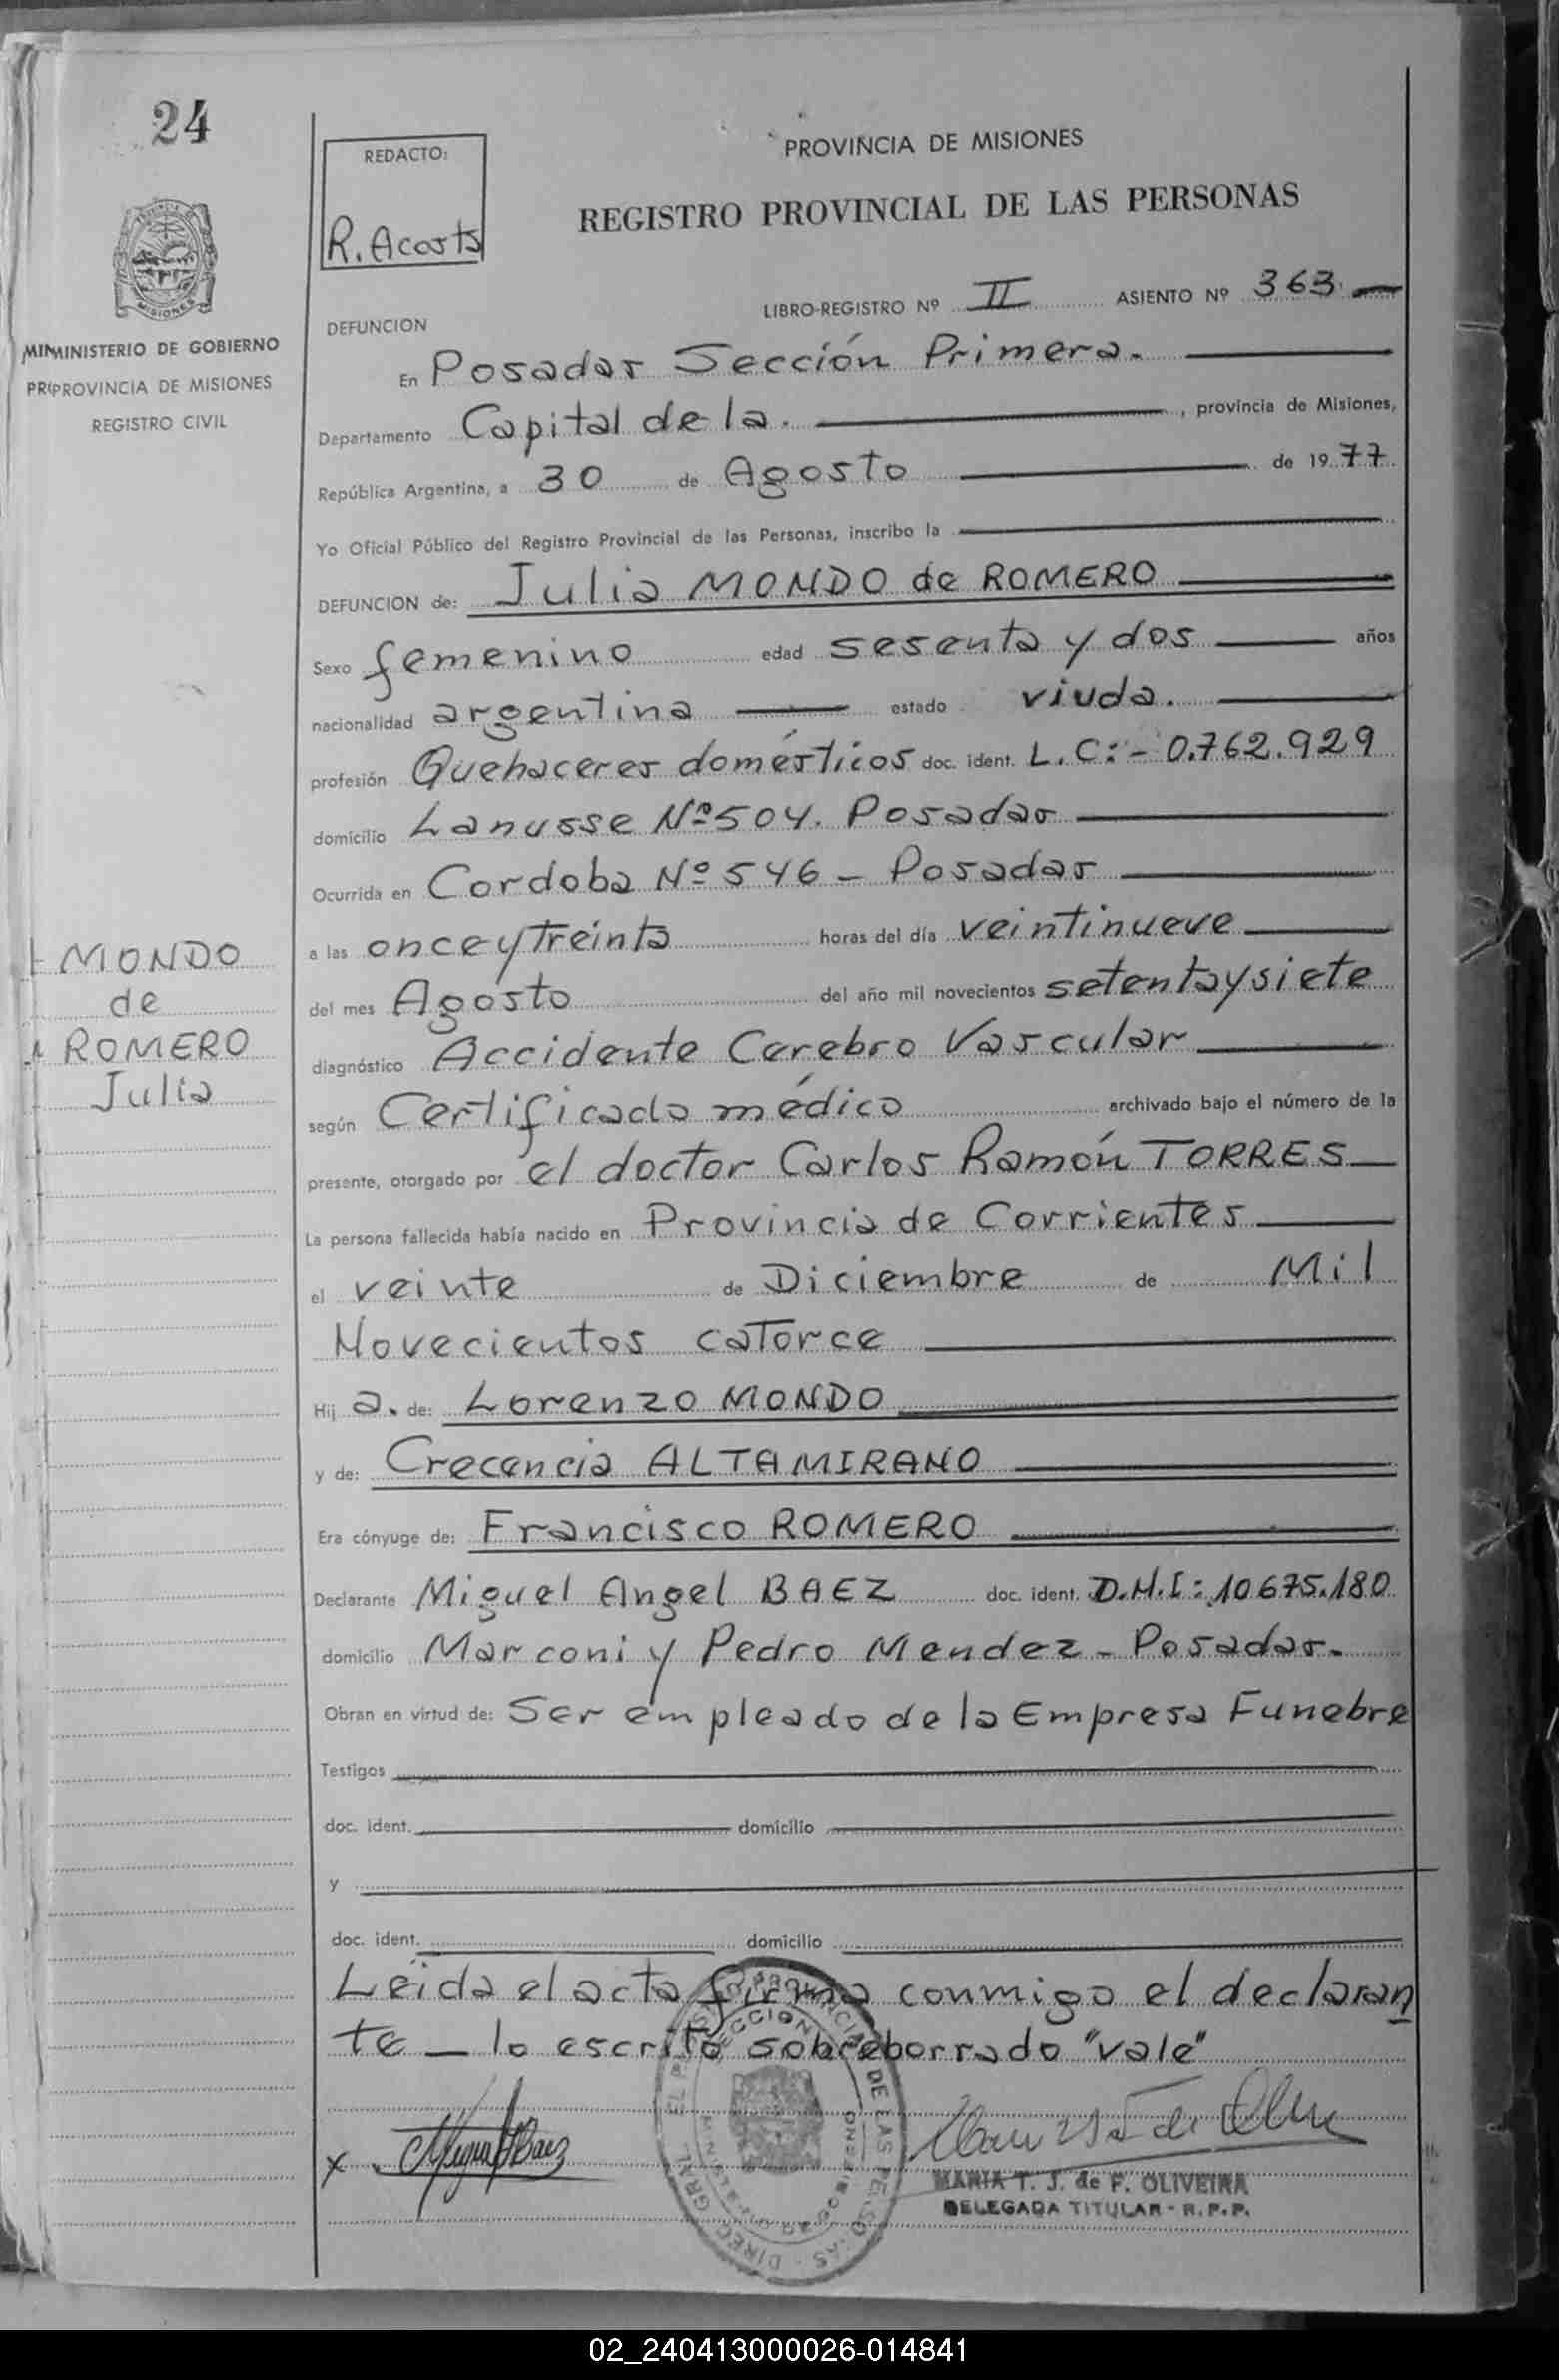 24
REDACTO:
R. Acosta
PROVINCIA DE MISIONES
REGISTRO PROVINCIAL DE LAS PERSONAS
LIBRO-REGISTRO Nº II ASIENTO Nº 363
MISIONES
MINISTERIO DE GOBIERNO
PROVINCIA DE MISIONES
REGISTRO CIVIL
DEFUNCION
En Posadas Sección Primera.
Departamento Capital de la. , provincia de Misiones,
República Argentina, a 30 de Agosto de 1977
Yo Oficial Público del Registro Provincial de las Personas, inscribo la
DEFUNCION de: Julia MONDO de ROMERO
Sexo femenino edad sesenta y dos años
nacionalidad argentina estado viuda.
profesión Quehaceres domésticos doc. ident. L.C:- 0.762.929
domicilio Lanusse Nº 504. Posadas
Ocurrida en Cordoba Nº 546 - Posadas
a las once y treinta horas del día veintinueve
del mes Agosto del año mil novecientos setenta y siete
diagnóstico Accidente Cerebro Vascular
según Certificado médico archivado bajo el número de la
presente, otorgado por el doctor Carlos Ramón TORRES
La persona fallecida había nacido en Provincia de Corrientes
el veinte de Diciembre de Mil
Novecientos catorce
Hij a. de: Lorenzo MONDO
y de: Crecencia ALTAMIRANO
Era cónyuge de: Francisco ROMERO
Declarante Miguel Angel BAEZ doc. ident. D.N.I: 10675.180
domicilio Marconi y Pedro Mendez - Posadas.
Obran en virtud de: Ser empleado de la Empresa Funebre
Testigos
doc. ident. domicilio
y
doc. ident. domicilio
Leida el acta firma conmigo el declaran
te - lo escrito sobreborrado "vale"
MONDO
de
ROMERO
Julia
x Miguel A Baez
MARIA T. J. de F. OLIVEIRA
DELEGADA TITULAR - R.P.P.
02_240413000026-014841